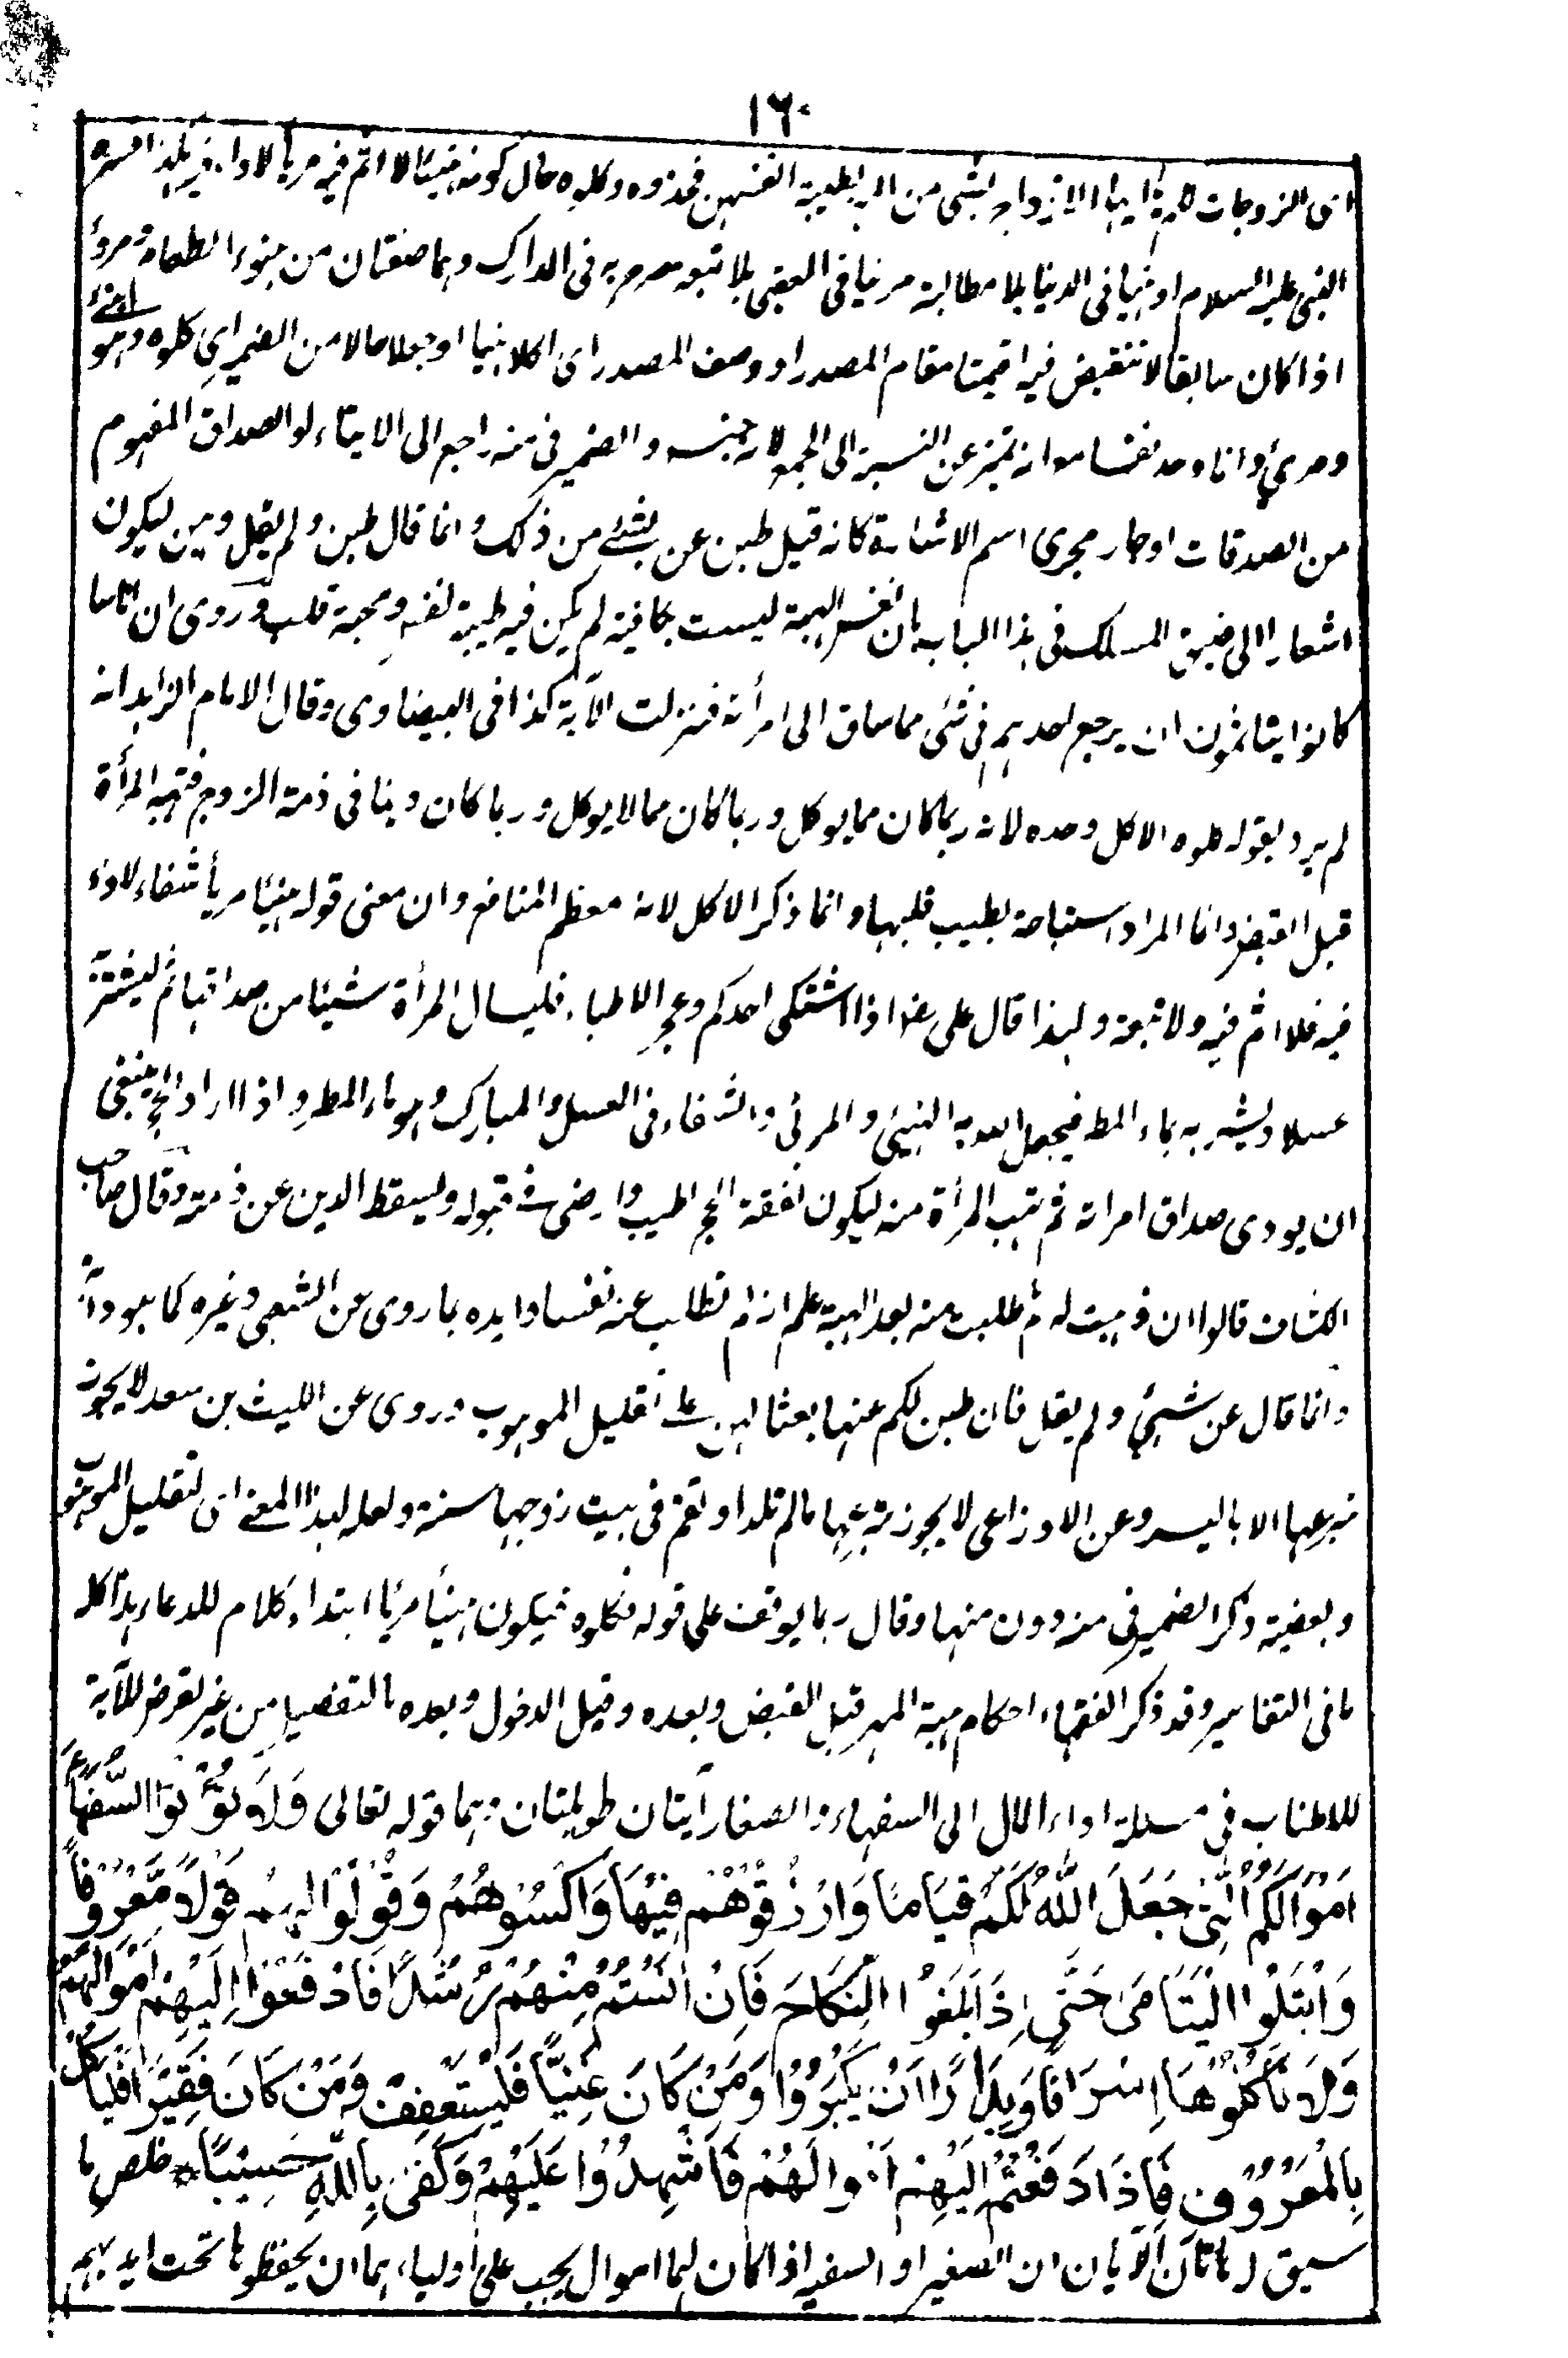 ١٦٠
اى الزوجات لكم ايها الازواج بشى من المهر بطيبة انفسهن فخذوه وكلوه حال كونه هنيئا لا اثم فيه مريا لا داء فيه
النبى عليه السلام او هنيا فى الدنيا بلا مطالبة مرئيا فى العقبى بلا تبعة صرح به فى المدارك وهما صفتان من هنوء الطعام ومرؤ
اذا كان سابقا لا تنقيض فيه اقيمتا مقام المصدر او وصف المصدر اى اكلا هنيا او جعلا حالا من الضمير اى كلوه وهو هنئ
ومرئ وانما وحد نفسا مع انه تميز عن النسبة الى الجمع لانه جنس والضمير فى منه راجع الى الايتاء او الصداق المفهوم
من الصدقات او جار مجرى اسم الاشارة كانه قيل طبن عن شئ من ذلك وانما قال طبن ولم يقل وهبن ليكون
اشعارا الى ضيق المسلك فى هذا الباب بان نفس الهبة ليست بكافية لم يكن فيه طيبة نفس ومحبة قلب وروى ان اناسا
كانوا يتاثمون ان يرجع احدهم فى شئ مما ساق الى امرأته فنزلت الآية كذا فى البيضاوى وقال الامام الزاهد انه
لم يرد بقوله كلوه الاكل وحده لانه ربما كان مما يوكل وربما كان مما لا يوكل وربما كان دينا فى ذمة الزوج فتهبه المرأة
قبل القبض وانما المراد استباحة بطيب قلبها وانما ذكر الاكل لانه معظم المنافع وان معنى قوله هنيئا مريأ شفاء لا داء
فيه فلا اثم فيه ولا تبعة ولهذا قال على رض اذا اشتكى احدكم وعجز الاطباء فليسال المرأة شيئا من صداقها ثم ليشتر
عسلا وليشربه بماء المطر فيجمع له به الهنئ والمرئى والشفاء فى العسل والمبارك وهو ماء المطر واذا اراد الحج ينبغى
ان يودى صداق امراته ثم تهب المرأة منه ليكون نفقة الحج اطيب وارضى فى قبوله وليسقط الدين عن ذمته وقال صاحب
الكشاف قالوا ان وهبت له ثم طلبت منه بعد الهبة علم انها لم تطلب عنه نفسا وايده بما روى عن الشعبى وغيره كما هو دأبه
وانما قال عن شئ ولم يقل فان طبن لكم عنها بعثا لهن على تقليل الموهوب وروى عن الليث بن سعد لا يجوز
تبرعها الا باليسير وعن الاوزاعى لا يجوز تبرعها مالم تلد او تقم فى بيت زوجها سنة ولعله لهذا المعنى اى لتقليل الموهوب
وبعضيته ذكر الضمير فى منه دون منها وقال ربما يوقف على قوله فكلوه فيكون هنيأ مريأ ابتداء كلام للدعاء هذا كله
ما فى التفاسير وقد ذكر الفقهاء احكام هبة المهر قبل القبض وبعده وقبل الدخول وبعده بالتفصيل من غير تعرض للآية
للاطناب فى مسئلة اداء المال الى السفهاء والصغار آيتان طويلتان وهما قوله تعالى وَلَا تُؤْتُوا السُّفَهَاءَ
اَمْوَالَكُمُ الَّتِىْ جَعَلَ اللّٰهُ لَكُمْ قِيَامًا وَارْزُقُوْهُمْ فِيْهَا وَاكْسُوْهُمْ وَقُوْلُوْا لَهُمْ قَوْلًا مَّعْرُوْفًا
وَابْتَلُوا الْيَتَامٰى حَتّٰى اِذَا بَلَغُوا النِّكَاحَ فَاِنْ اٰنَسْتُمْ مِنْهُمْ رُشْدًا فَادْفَعُوْا اِلَيْهِمْ اَمْوَالَهُمْ
وَلَا تَأْكُلُوْهَا اِسْرَافًا وَبِدَارًا اَنْ يَكْبَرُوْا وَمَنْ كَانَ غَنِيًّا فَلْيَسْتَعْفِفْ وَمَنْ كَانَ فَقِيْرًا فَلْيَأْكُلْ
بِالْمَعْرُوْفِ فَاِذَا دَفَعْتُمْ اِلَيْهِمْ اَمْوَالَهُمْ فَاَشْهِدُوْا عَلَيْهِمْ وَكَفٰى بِاللّٰهِ حَسِيْبًا * خلص ما
سيق له هاتان الآيتان ان الصغير او السفيه اذا كان لهما اموال يجب على اوليائهما ان يحفظوها تحت ايديهم